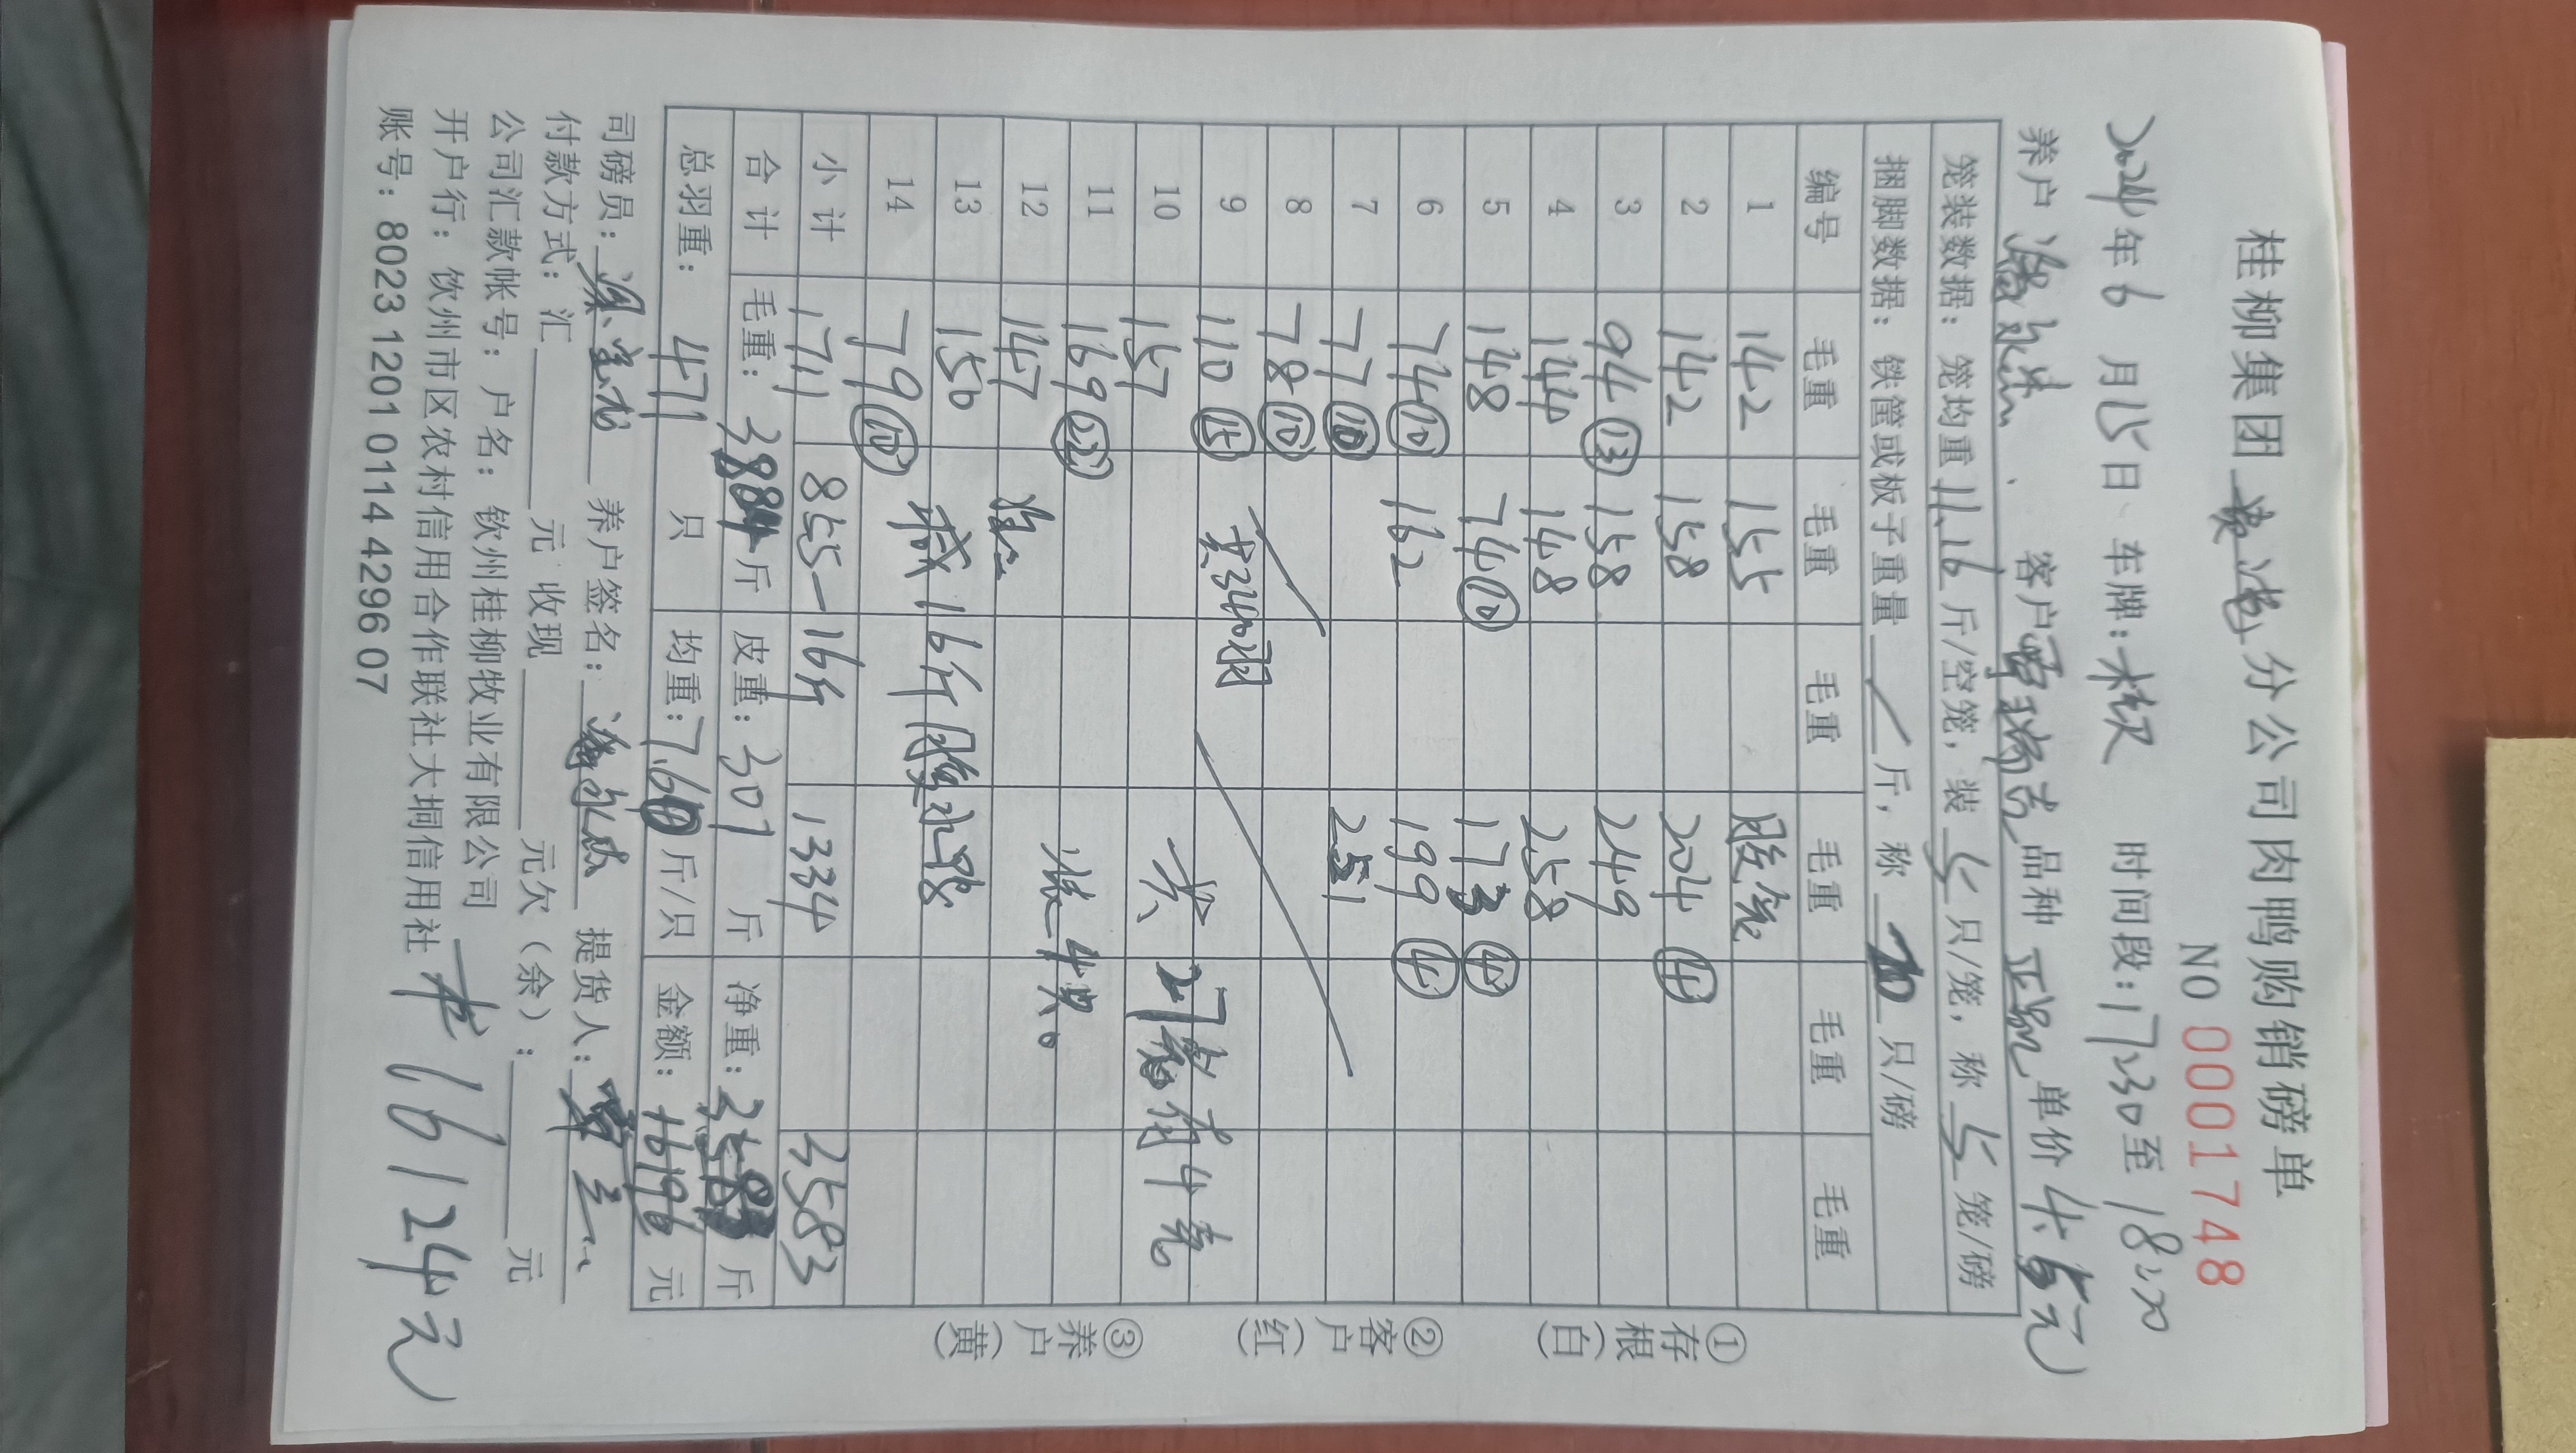 桂柳集团 分公司肉鸭购销磅单
NO 0001748
2024年6月15日 车牌: 时间段:17:30至18:20
养户 潘 客户 品种 正品 单价 4.5元
笼装数据:笼均重11.16斤/空笼,装5只/笼,称5笼/磅
捆脚数据:铁筐或板子重量 / 斤,称 只/磅
编号 毛重 毛重 毛重 毛重 毛重 毛重
1 142 155
2 142 158 204 ④
3 94 ⑬ 158 249
4 144 148 258
5 148 74 ⑩ 173 ④
6 74 ⑩ 162 199 ④
7 77 ⑩ 251
8 78 ⑩
9 110 ⑮ 共240羽
10 157 共27笼有4笼
11 169 ㉒ 装4只。
12 147
13 150 减16斤 水
14 79 ⑩
小计 1711 855-16斤 1334 3583
合计 毛重:3884斤 皮重:301 斤 净重:3583斤
总羽重: 471 只 均重:7.60斤/只 金额: 元
司磅员: 养户签名: 提货人:
付款方式:汇 元 收现 元欠(余): 元
公司汇款帐号:户名:钦州桂柳牧业有限公司
开户行:钦州市区农村信用合作联社大垌信用社
账号:8023 1201 0114 4296 07
16124元
①存根(白) ②客户(红) ③养户(黄)